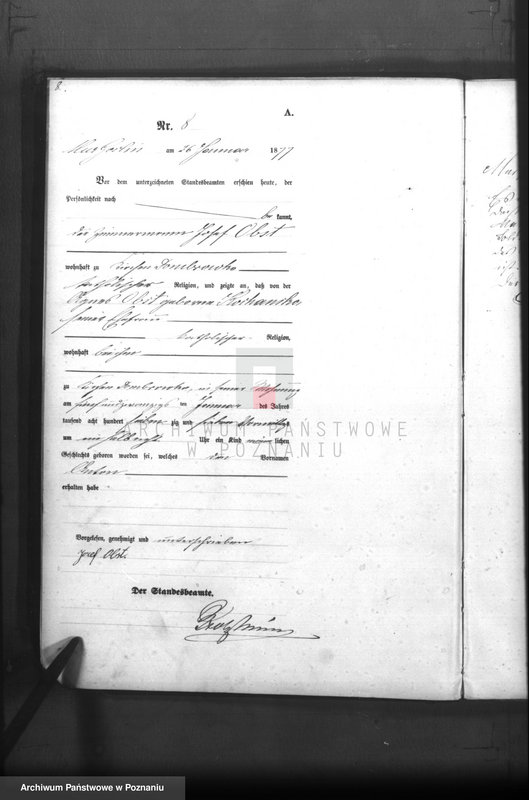 8.
A.
Nr. 8
am 26 Januar 1877
Vor dem unterzeichneten Standesbeamten erschien heute, der
Persönlichkeit nach
be kannt,
der Zimmermann Josef Obst
wohnhaft zu Kirchen Dombrowka
katholischer Religion, und zeigte an, daß von der
Agnes Obst geborene
seiner Ehefrau
katholischer Religion,
wohnhaft bei ihm
zu Kirchen Dombrowka, in seiner Wohnung
am fünfundzwanzigsten ten Januar des Jahres
tausend acht hundert sieben zig und sieben
um Uhr ein Kind männ lichen
Geschlechts geboren worden sei, welches den Vornamen
Anton
erhalten habe
Vorgelesen, genehmigt und unterschrieben
Josef Obst.
Der Standesbeamte.
ARCHIWUM PAŃSTWOWE
W POZNANIU
Archiwum Państwowe w Poznaniu